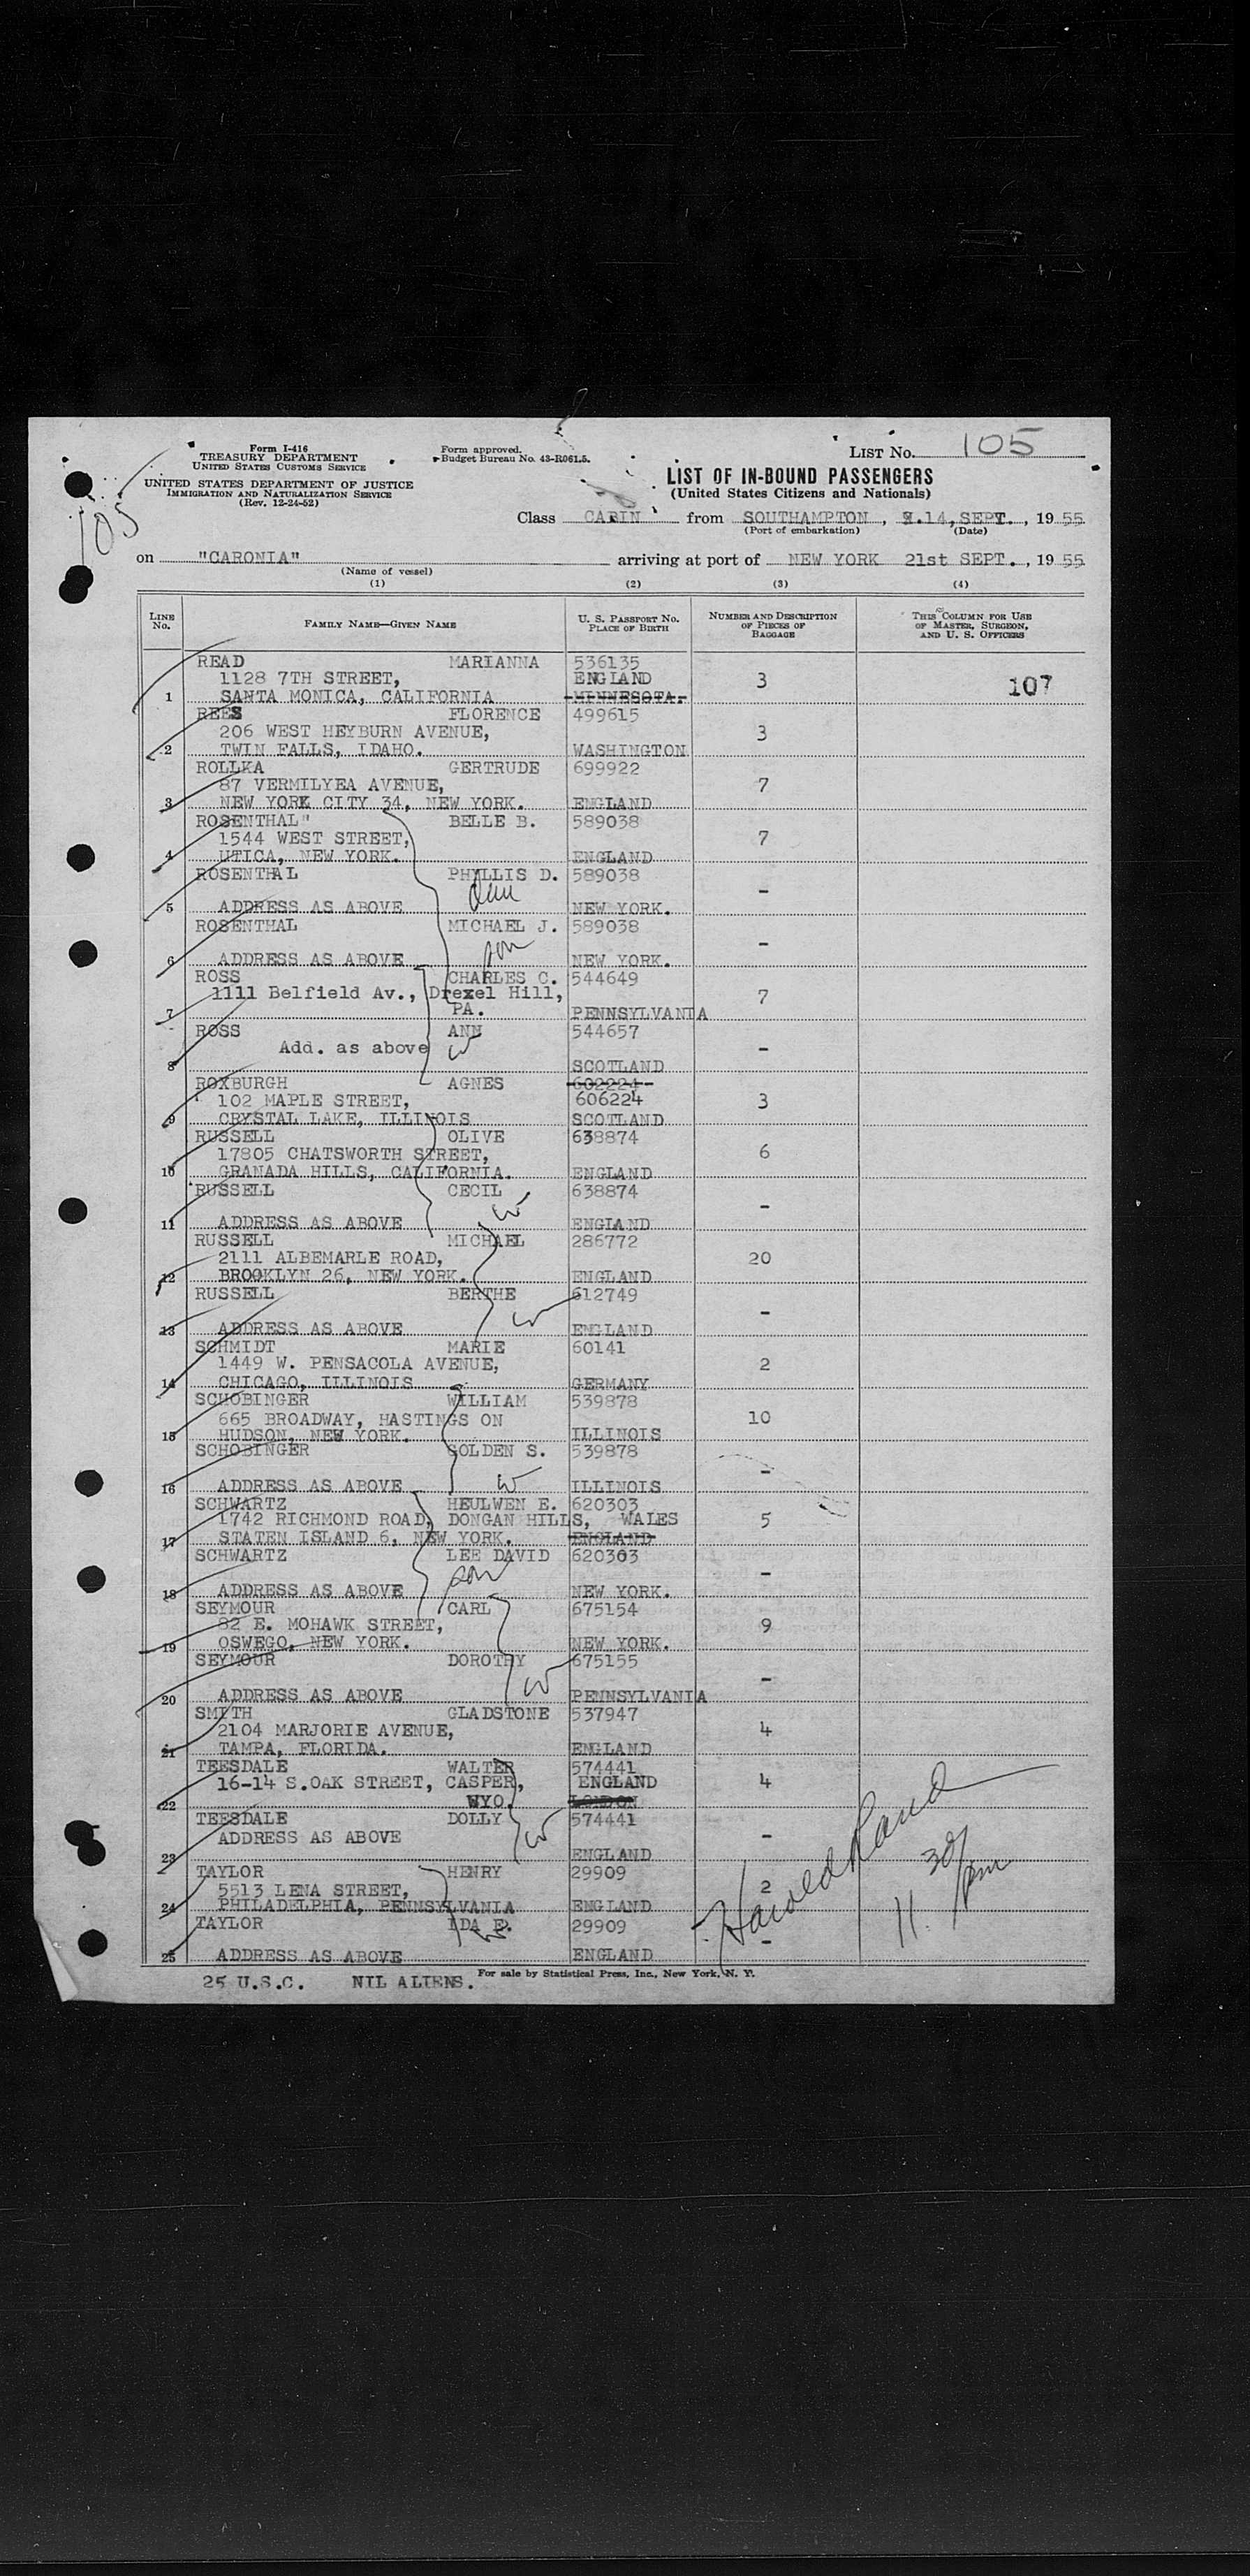 Form I-416
TREASURY DEPARTMENT
UNITED STATES CUSTOMS SERVICE
UNITED STATES DEPARTMENT OF JUSTICE
IMMIGRATION AND NATURALIZATION SERVICE
(Rev. 12-24-52)
Form approved.
Budget Bureau No. 43-R061.5.
LIST No. 105
LIST OF IN-BOUND PASSENGERS
(United States Citizens and Nationals)
105
Class CABIN from SOUTHAMPTON, 14, SEPT., 1955
(Port of embarkation) (Date)
on "CARONIA" arriving at port of NEW YORK 21st SEPT., 1955
(Name of vessel)
(1) (2) (3) (4)
LINE No. FAMILY NAME—GIVEN NAME U. S. PASSPORT No. PLACE OF BIRTH NUMBER AND DESCRIPTION OF PIECES OF BAGGAGE THIS COLUMN FOR USE OF MASTER, SURGEON, AND U. S. OFFICERS
READ MARIANNA 536135
1128 7TH STREET, ENGLAND 3
1 SANTA MONICA, CALIFORNIA MINNESOTA. 107
REES FLORENCE 499615
206 WEST HEYBURN AVENUE, 3
2 TWIN FALLS, IDAHO. WASHINGTON
ROLLKA GERTRUDE 699922
87 VERMILYEA AVENUE, 7
3 NEW YORK CITY 34, NEW YORK. ENGLAND
ROSENTHAL" BELLE B. 589038
1544 WEST STREET, 7
4 UTICA, NEW YORK. ENGLAND
ROSENTHAL PHYLLIS D. 589038
dau -
5 ADDRESS AS ABOVE NEW YORK.
ROSENTHAL MICHAEL J. 589038
son -
6 ADDRESS AS ABOVE NEW YORK.
ROSS CHARLES C. 544649
1111 Belfield Av., Drexel Hill, 7
7 PA. PENNSYLVANIA
ROSS ANN 544657
Add. as above w -
8 SCOTLAND
ROXBURGH AGNES 602224
102 MAPLE STREET, 606224 3
9 CRYSTAL LAKE, ILLINOIS SCOTLAND
RUSSELL OLIVE 638874
17805 CHATSWORTH STREET, 6
10 GRANADA HILLS, CALIFORNIA. ENGLAND
RUSSELL CECIL 638874
w -
11 ADDRESS AS ABOVE ENGLAND
RUSSELL MICHAEL 286772
2111 ALBEMARLE ROAD, 20
12 BROOKLYN 26, NEW YORK. ENGLAND
RUSSELL BERTHE 612749
w -
13 ADDRESS AS ABOVE ENGLAND
SCHMIDT MARIE 60141
1449 W. PENSACOLA AVENUE, 2
14 CHICAGO, ILLINOIS GERMANY
SCHOBINGER WILLIAM 539878
665 BROADWAY, HASTINGS ON 10
15 HUDSON, NEW YORK. ILLINOIS
SCHOBINGER GOLDEN S. 539878
w -
16 ADDRESS AS ABOVE ILLINOIS
SCHWARTZ HEULWEN E. 620303
1742 RICHMOND ROAD, DONGAN HILLS, WALES 5
17 STATEN ISLAND 6, NEW YORK. ENGLAND
SCHWARTZ LEE DAVID 620303
son -
18 ADDRESS AS ABOVE NEW YORK.
SEYMOUR CARL 675154
82 E. MOHAWK STREET, 9
19 OSWEGO, NEW YORK. NEW YORK.
SEYMOUR DOROTHY 675155
w -
20 ADDRESS AS ABOVE PENNSYLVANIA
SMITH GLADSTONE 537947
2104 MARJORIE AVENUE, 4
21 TAMPA, FLORIDA. ENGLAND
TEESDALE WALTER 574441
16-14 S.OAK STREET, CASPER, ENGLAND 4
22 WYO. LONDON
TEESDALE DOLLY 574441
ADDRESS AS ABOVE w -
23 ENGLAND
TAYLOR HENRY 29909
5513 LENA STREET, 2
24 PHILADELPHIA, PENNSYLVANIA ENGLAND
TAYLOR IDA E. 29909
w -
25 ADDRESS AS ABOVE ENGLAND
Harold Rand
11.30 pm
25 U.S.C. NIL ALIENS. For sale by Statistical Press, Inc., New York, N. Y.